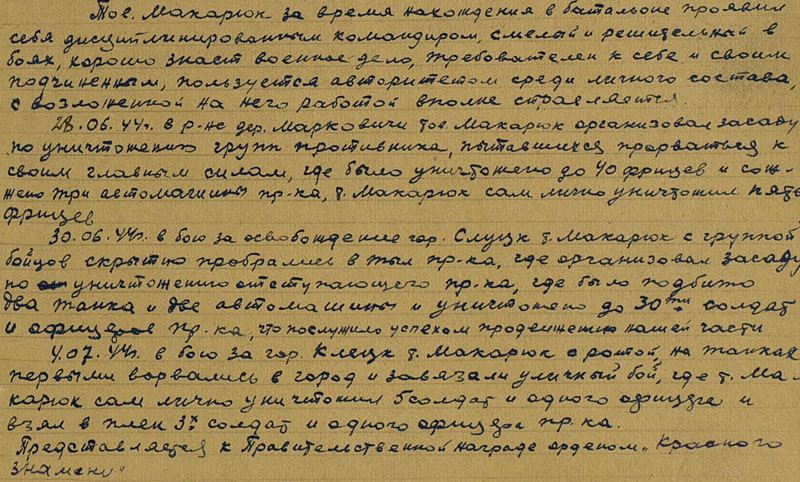 Тов. Макарюк за время нахождения в батальоне проявил
себя дисциплинированным командиром, смелый и решительный в
боях, хорошо знает военное дело, требователен к себе и своим
подчиненным, пользуется авторитетом среди личного состава,
с возложенной на него работой вполне справляется.
28.06.44г. в р-не дер. Марковичи тов. Макарюк организовал засаду
по уничтожению групп противника, пытавшихся прорваться к
своим главным силам, где было уничтожено до 40 фрицев и сож-
жено три автомашины пр-ка, т. Макарюк сам лично уничтожил пять
фрицев
30.06.44г. в бою за освобождение гор. Слуцк т. Макарюк с группой
бойцов скрытно пробрались в тыл пр-ка, где организовал засаду
по уничтожению отступающего пр-ка, где было подбито
два танка и две автомашины и уничтожено до 30ти солдат
и офицеров пр-ка, что послужило успехом продвижению нашей части
4.07.44г. в бою за гор. Клецк т. Макарюк с ротой, на танках
первыми ворвались в город и завязали уличный бой, где т. Ма-
карюк сам лично уничтожил 5 солдат и одного офицера и
взял в плен 3х солдат и одного офицера пр-ка.
Представляется к Правительственной награде орденом „Красного
знамени"